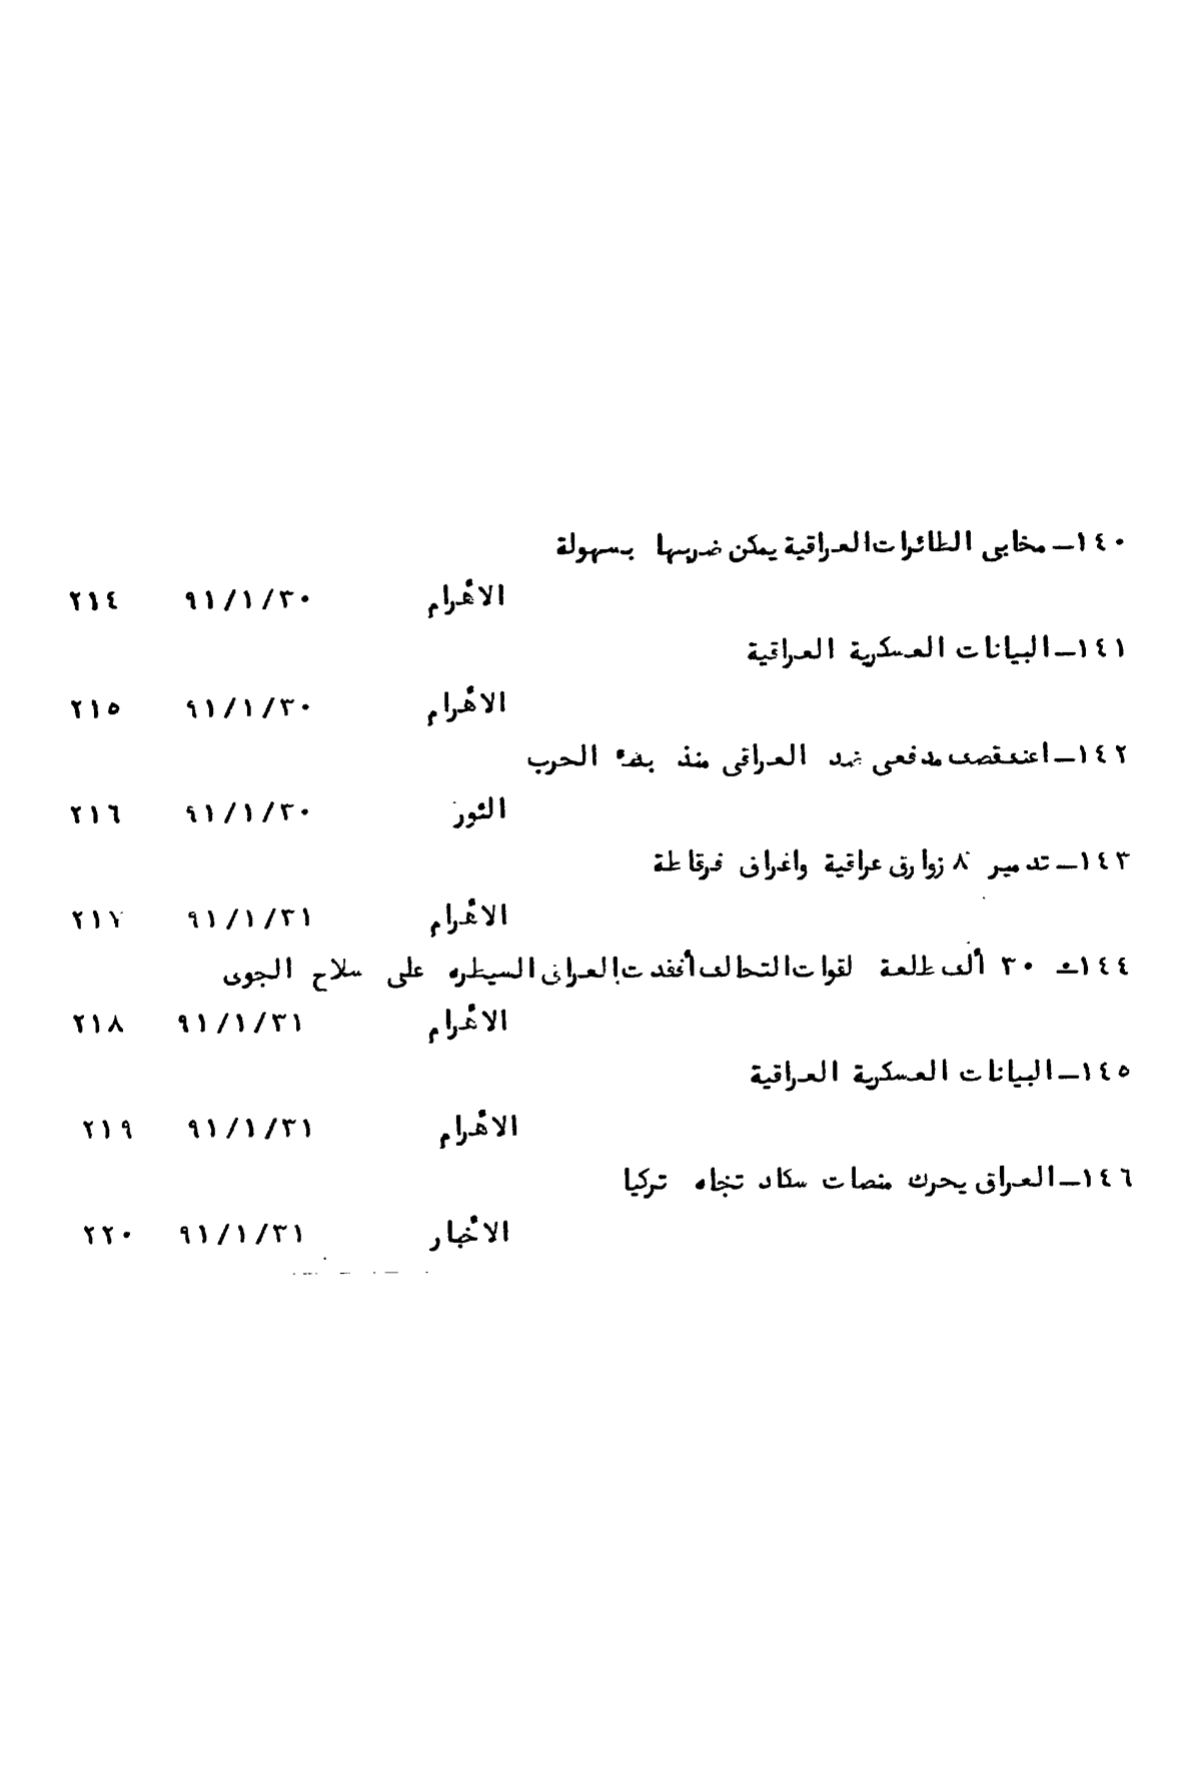 ١٤٠ـ مخابى الطائرات العراقية يمكن ضربها بسهولة
الأهرام ٩١/١/٣٠ ٢١٤
١٤١ـ البيانات العسكرية العراقية
الأهرام ٩١/١/٣٠ ٢١٥
١٤٢ـ اعنف قصف مدفعى ضد العراقى منذ بدء الحرب
٩١/١/٣٠ ٢١٦
١٤٣ـ تدمير ٨ زوارق عراقية واغراق فرقاطة
الأهرام ٩١/١/٣١ ٢١٧
١٤٤ـ ٣٠ ألف طلعة لقوات التحالف أفقدت العراق السيطره على سلاح الجوى
الأهرام ٩١/١/٣١ ٢١٨
١٤٥ـ البيانات العسكرية العراقية
الأهرام ٩١/١/٣١ ٢١٩
١٤٦ـ العراق يحرك منصات سكاد تجاه تركيا
الأخبار ٩١/١/٣١ ٢٢٠